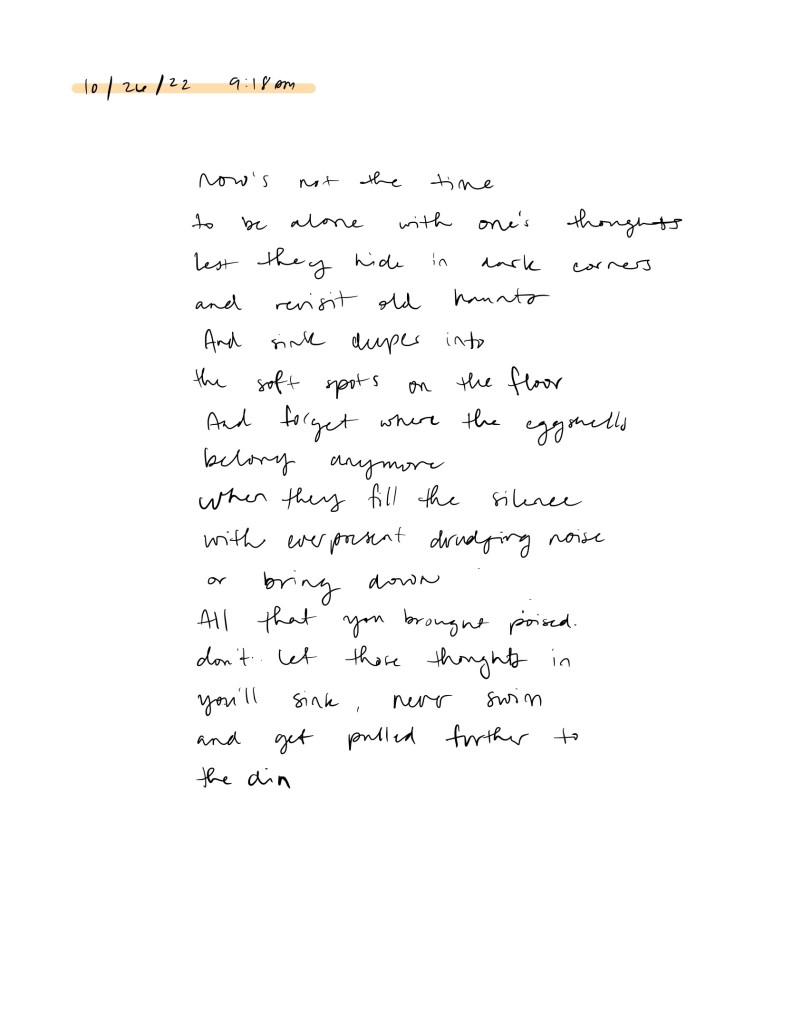 10/26/22 9:18 pm
Now's not the time
to be alone with one's thoughts
lest they hide in dark corners
and revisit old haunts
And sink deeper into
the soft spots on the floor
And forget where the eggshells
belong anymore
when they fill the silence
with everpresent drudging noise
or bring down
All that you brought poised.
don't let those thoughts in
you'll sink, never swim
and get pulled further to
the din